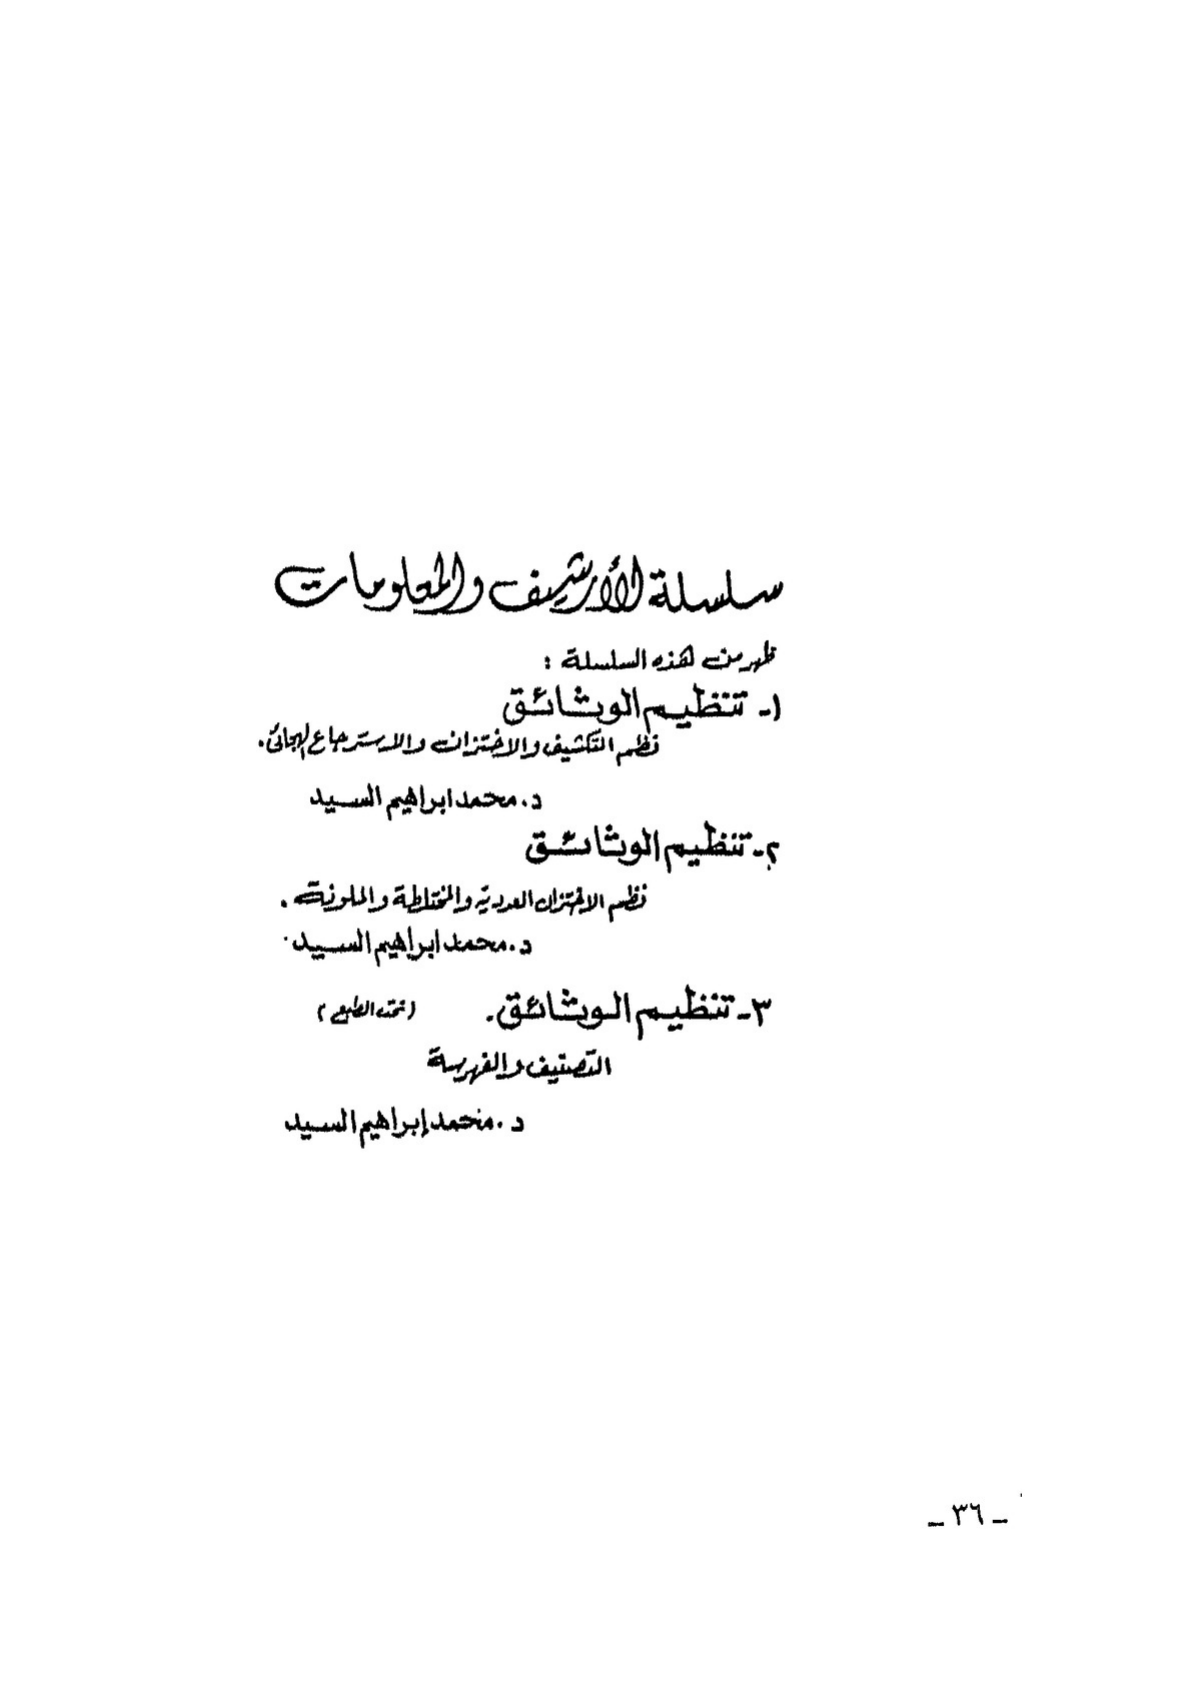 سلسلة الأرشيف والمعلومات
ظهر من هذه السلسلة :
١- تنظيم الوثائق
نظم التكشيف والاختزان والاسترجاع الهجائى .
د. محمد ابراهيم السيد
٢- تنظيم الوثائق
نظم الاختزان العددية والمختلطة والملونة .
د. محمد ابراهيم السيد
٣- تنظيم الوثائق . (تحت الطبع)
التصنيف والفهرسة
د. محمد إبراهيم السيد
– ٣٦ –